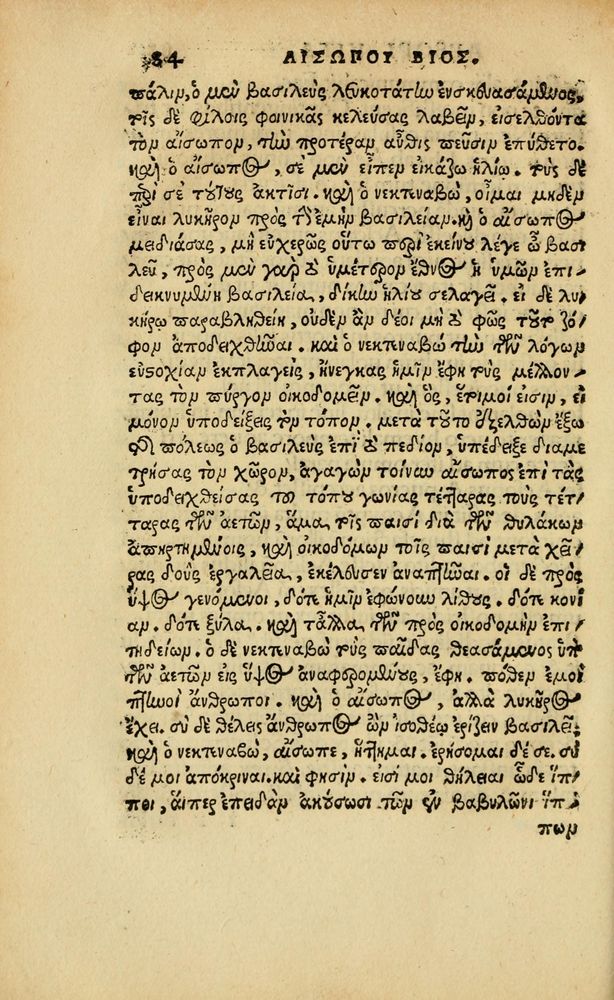 84 ΑΙΣΩΠΟΥ ΒΙΟΣ.
πάλιν, ὁ μὲν βασιλεὺς λευκοτάτην ἐνσκευασάμενος,
τοῖς δὲ φίλοις φοινικᾶς κελεύσας λαβεῖν, εἰσελθόντα
τὸν αἴσωπον, τὴν προτέραν αὖθις πεῦσιν ἐπύθετο.
καὶ ὁ αἴσωπος, σὲ μὲν εἶπεν εἰκάζω ἡλίῳ. τοὺς δὲ
περὶ σὲ τούτους ἀκτῖσι. καὶ ὁ νεκτιναβὼ, οἶμαι μηδὲν
εἶναι λυκῆρον πρὸς τὴν ἐμὴν βασιλείαν. καὶ ὁ αἴσωπος
μειδιάσας, μὴ εὐχερῶς οὕτω περὶ ἐκείνου λέγε ὦ βασι
λεῦ, πρὸς μὲν γὰρ τὸ ὑμέτερον ἔθνος ἡ ὑμῶν ἐπι/
δεικνυμένη βασιλεία, δίκην ἡλίου σελαγεῖ. εἰ δὲ λυ/
κήρῳ παραβληθείη, οὐδὲν ἂν δέοι μὴ τὸ φῶς τοῦτο ζό/
φον ἀποδειχθῆναι. καὶ ὁ νεκτιναβὼ τὴν τῶν λόγων
εὐστοχίαν ἐκπλαγεὶς, ἤνεγκας ἡμῖν ἔφη τοὺς μέλλον/
τας τὸν πύργον οἰκοδομεῖν. καὶ ὃς, ἕτοιμοί εἰσιν, εἰ
μόνον ὑποδείξεις τὸν τόπον. μετὰ τοῦτο ἐξελθὼν ἔξω
τῆς πόλεως ὁ βασιλεὺς ἐπὶ τὸ πεδίον, ὑπέδειξε διαμε
τρήσας τὸν χῶρον, ἀγαγὼν τοίνυν αἴσωπος ἐπὶ τὰς
ὑποδειχθείσας τοῦ τόπου γωνίας τέτταρας τοὺς τέτ/
ταρας τῶν ἀετῶν, ἅμα τοῖς παισὶ διὰ τῶν θυλάκων
ἀπηρτημένοις, καὶ οἰκοδόμων τοῖς παισὶ μετὰ χεῖ/
ρας δοὺς ἐργαλεῖα, ἐκέλευσεν ἀναπτῆναι. οἱ δὲ πρὸς
ὕψος γενόμενοι, δότε ἡμῖν ἐφώνουν λίθους. δότε κονί
αν. δότε ξύλα. καὶ τἆλλα τῶν πρὸς οἰκοδομὴν ἐπι/
τηδείων. ὁ δὲ νεκτιναβὼ τοὺς παῖδας θεασάμενος ὑπὸ
τῶν ἀετῶν εἰς ὕψος ἀναφερομένους, ἔφη. πόθεν ἐμοὶ
πτηνοὶ ἄνθρωποι. καὶ ὁ αἴσωπος, ἀλλὰ λυκῆρος
ἔχει. σὺ δὲ θέλεις ἄνθρωπος ὢν ἰσοθέῳ ἐρίζειν βασιλεῖ;
καὶ ὁ νεκτιναβὼ, αἴσωπε, ἥττημαι. ἐρήσομαι δέ σε. σὺ
δέ μοι ἀπόκριναι. καὶ φησὶν. εἰσί μοι θήλειαι ὧδε ἵπ/
ποι, αἵπερ ἐπειδὰν ἀκούσωσι τῶν ἐν βαβυλῶνι ἵπ/
πων